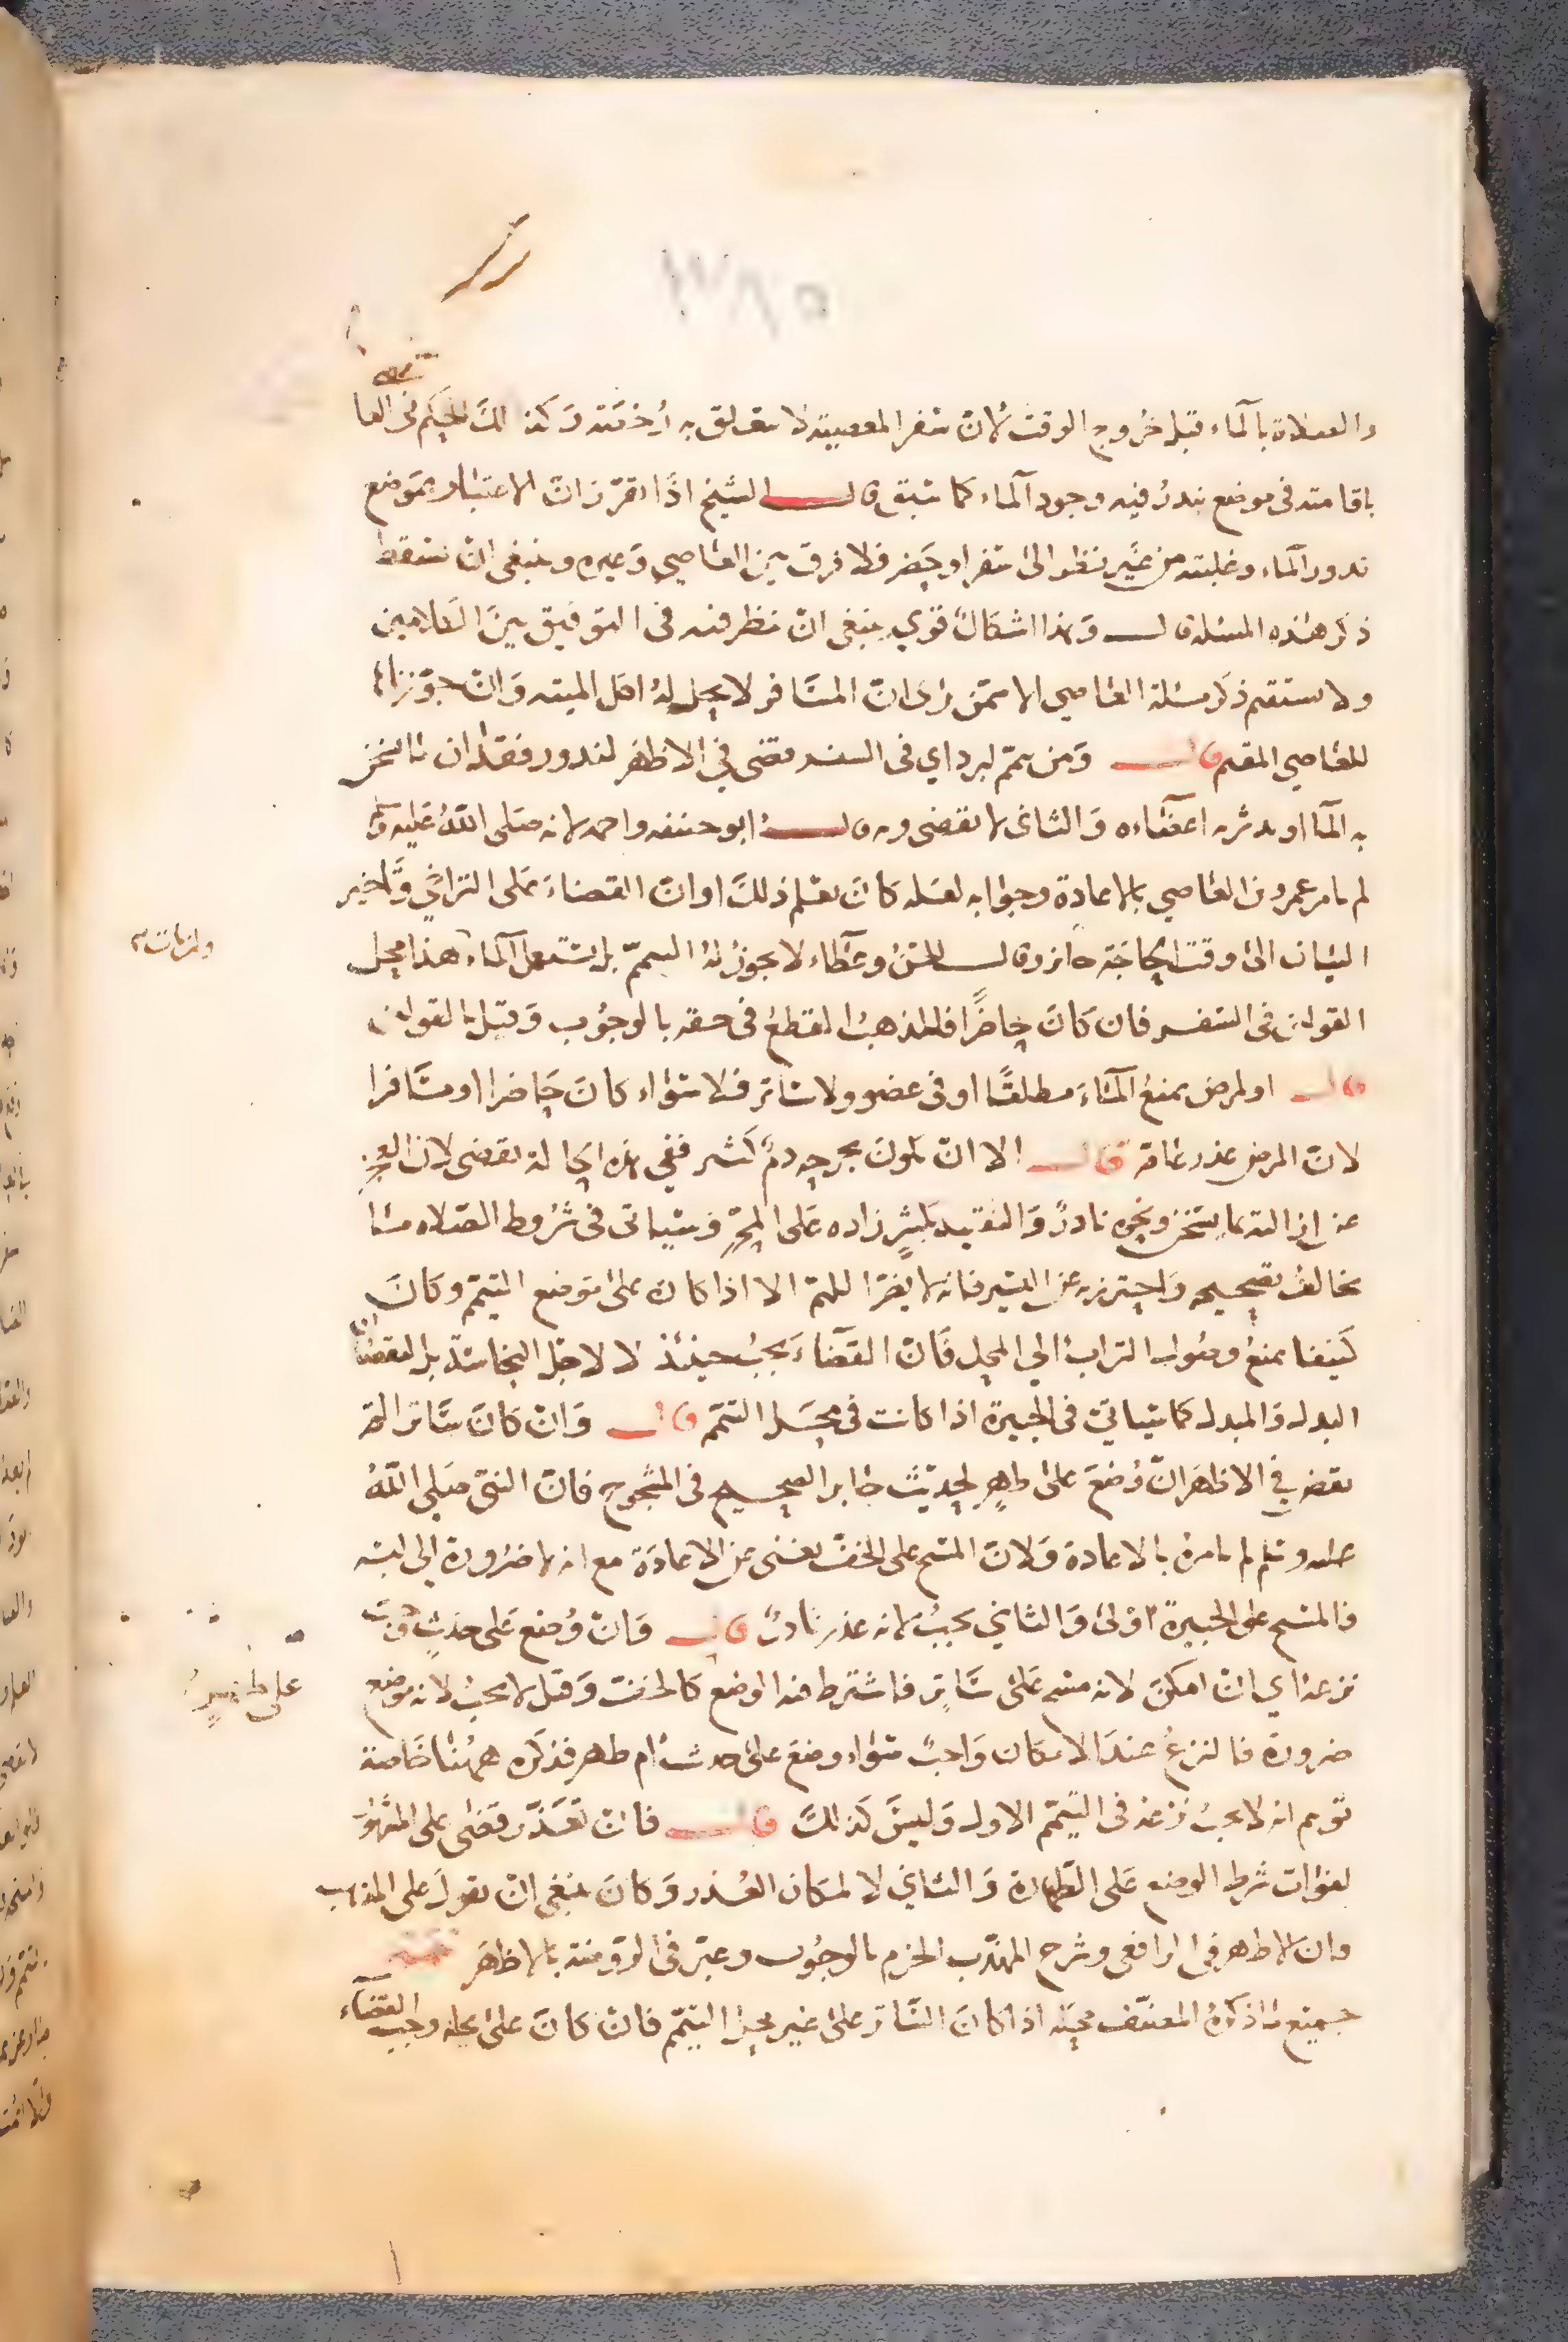 والصلاة بالماء قبل خروج الوقت لان سفر المعصية لا يتعلق به رخصة وكذلك الحكم في العاصي
باقامته في موضع يندر فيه وجود الماء كما سبق قال الشيخ اذا تقرر ان الاعتبار بموضع
ندور الماء وغلبته من غير نظر الى سفر او حضر فلا فرق بين العاصي وغيره وينبغي ان تسقط
ذكر هذه المسئلة قال وهذا اشكال قوي ينبغي ان ينظر فيه في التوفيق بين الكلامين
ولا يستقيم ذكر مسئلة العاصي الا ممن يرى ان المسافر لا يحل له اكل الميتة وان جوزناها
للعاصي المقيم قال ومن تيمم لبرد اي في السفر قضى في الاظهر لندور فقدان ما يسخن
به الما او يدثر به اعضاءه والثاني لا يقضي وبه قال ابو حنيفة واحمد لانه صلى الله عليه وسلم
لم يامر عمرو بن العاصي بالاعادة وجوابه لعله كان يعلم ذلك او ان القضاء على التراخي وتاخير
البيان الى وقت الحاجة جائز وقال الحسن وعطاء لا يجوز له التيمم بل يستعمل الماء هذا محل
القولين في السفر فان كان حاضرا فالمذهب القطع في حقه بالوجوب وقيل بالقولين
قال او لمرض يمنع الماء مطلقا او في عضو ولا ساتر فلا سواء كان حاضرا او مسافرا
لان المرض عذر عام قال الا ان يكون بجرحه دم كثير ففي هذه الحالة يقضي لان العجز
عن ازالته بما يسخن ونحوه نادر والتقييد بكثير زاده على المحرر وسياتي في شروط الصلاه ما
يخالف تصحيحه واحترز به عن اليسير فانه لا يضر اللهم الا اذا كان على موضع التيمم وكان
كثيفا يمنع وصول التراب الى المحل فان القضاء يجب حينئذ لا لاجل النجاسة بل لنقصان
البدل والمبدل كما سياتي في الجبيرة اذا كانت في محل التيمم قال وان كان ساتر لم
يقض في الاظهر ان وضع على طهر لحديث جابر الصحيح في المشجوج فان النبي صلى الله
عليه وسلم لم يامره بالاعادة ولان المسح على الخف يغني عن الاعادة مع انه لا ضرورة الى لبسه
فالمسح على الجبيرة اولى والثاني يجب لانه عذر نادر قال وان وضع على حدث وجب
نزعه اي ان امكن لانه مسح على ساتر فاشترط فيه الوضع كالخف وقيل لا يجب لانه موضع
على طهر
ضرورة فالنزع عند الامكان واجب سواء وضع على حدث ام طهر فذكره ههنا خاصة
توهم انه لا يجب نزعه في القسم الاول وليس كذلك قال فان تعذر قضى على المشهور
لفوات شرط الوضع على الطهارة والثاني لا لمكان العذر وكان ينبغي ان يقول على المذهب
وان الاظهر في الرافعي وشرح المهذب الجزم بالوجوب وعبر في الروضة بالاظهر
جميع ما ذكره المصنف محله اذا كان الساتر على غير محل التيمم فان كان على محله وجب القضاء